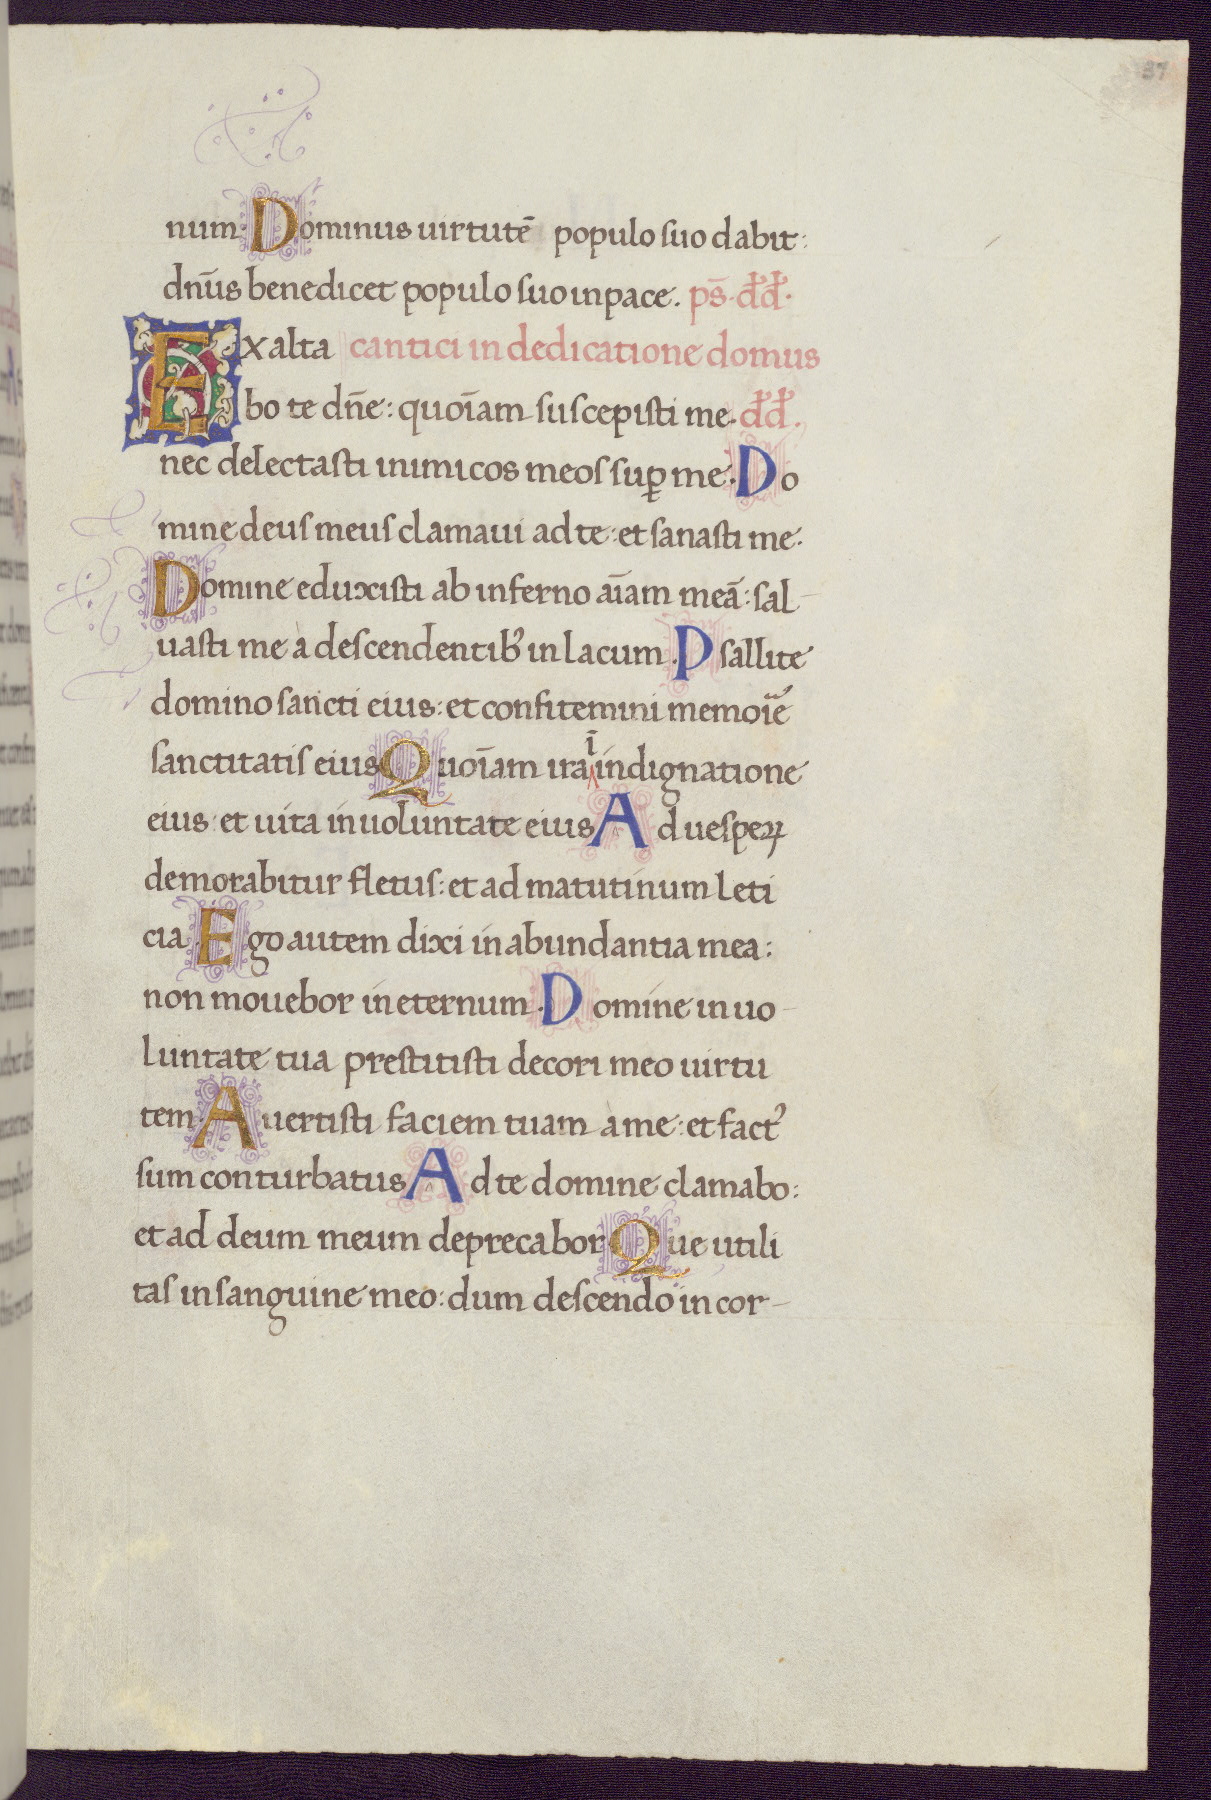 37
num. Dominus uirtutē populo suo dabit:
dn̄us benedicet populo suo in pace. ps̄. dd̄.
Exalta cantici in dedicatione domus
bo te dn̄e: quoīam suscepisti me. dd̄.
nec delectasti inimicos meos suꝑ me. Do
mine deus meus clamaui ad te: et sanasti me:
Domine eduxisti ab inferno aīam meā: sal-
uasti me a descendentibꝰ in lacum. Psallite
domino sancti eius: et confitemini memoīe
sanctitatis eius Quoīam ira ī indignatione
eius: et uita in uoluntate eius Ad uesperꝝ
demorabitur fletus: et ad matutinum leti
cia. Ego autem dixi in abundantia mea:
non mouebor in eternum. Domine in uo-
luntate tua prestitisti decori meo uirtu
tem. Auertisti faciem tuam a me: et factꝰ
sum conturbatus Ad te domine clamabo:
et ad deum meum deprecabor Que utili
tas in sanguine meo: dum descendo in cor-